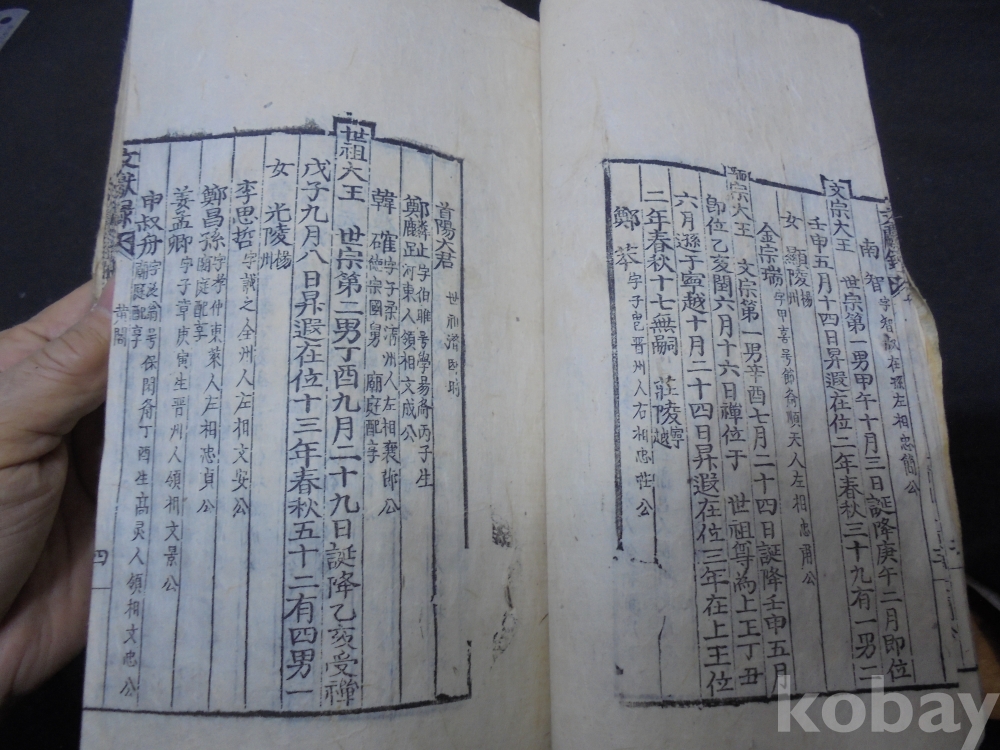 南智 字智叔在逐左相忠簡公
文宗大王 世宗第一男甲午十月三日誕降庚午二月即位
壬申五月十四日昇遐在位二年春秋三十九有一男二
女 顯陵楊州
金宗瑞 字甲喜号節斎順天人左相忠甬公
端宗大王 文宗第一男辛酉七月二十四日誕降壬申五月
即位乙亥閏六月十六日禪位于 世祖尊為上王丁丑
六月遜于寧越十月二十四日昇遐在位三年在上王位
二年春秋十七無嗣 莊陵寧越
鄭苯 字子皀晋州人右相忠莊公
首陽大君
鄭麟趾 字伯睢号學易斎丙子生
河東人領相文成公
韓確 字子柔清州人左相襄節公
德宗國舅 廟庭配享
世祖大王 世宗第二男丁酉九月二十九日誕降乙亥受禪
戊子九月八日昇遐在位十三年春秋五十二有四男一
女 光陵楊州
李思哲 字誠之全州人左相文安公
鄭昌孫 字孝仲東萊人左相忠貞公
廟庭配享
姜孟卿 字子章庚寅生晋州人領相文景公
申叔舟 字泛翁号保閑斎丁酉生高灵人領相文忠公
廟庭配享
文獻錄
四
kobay